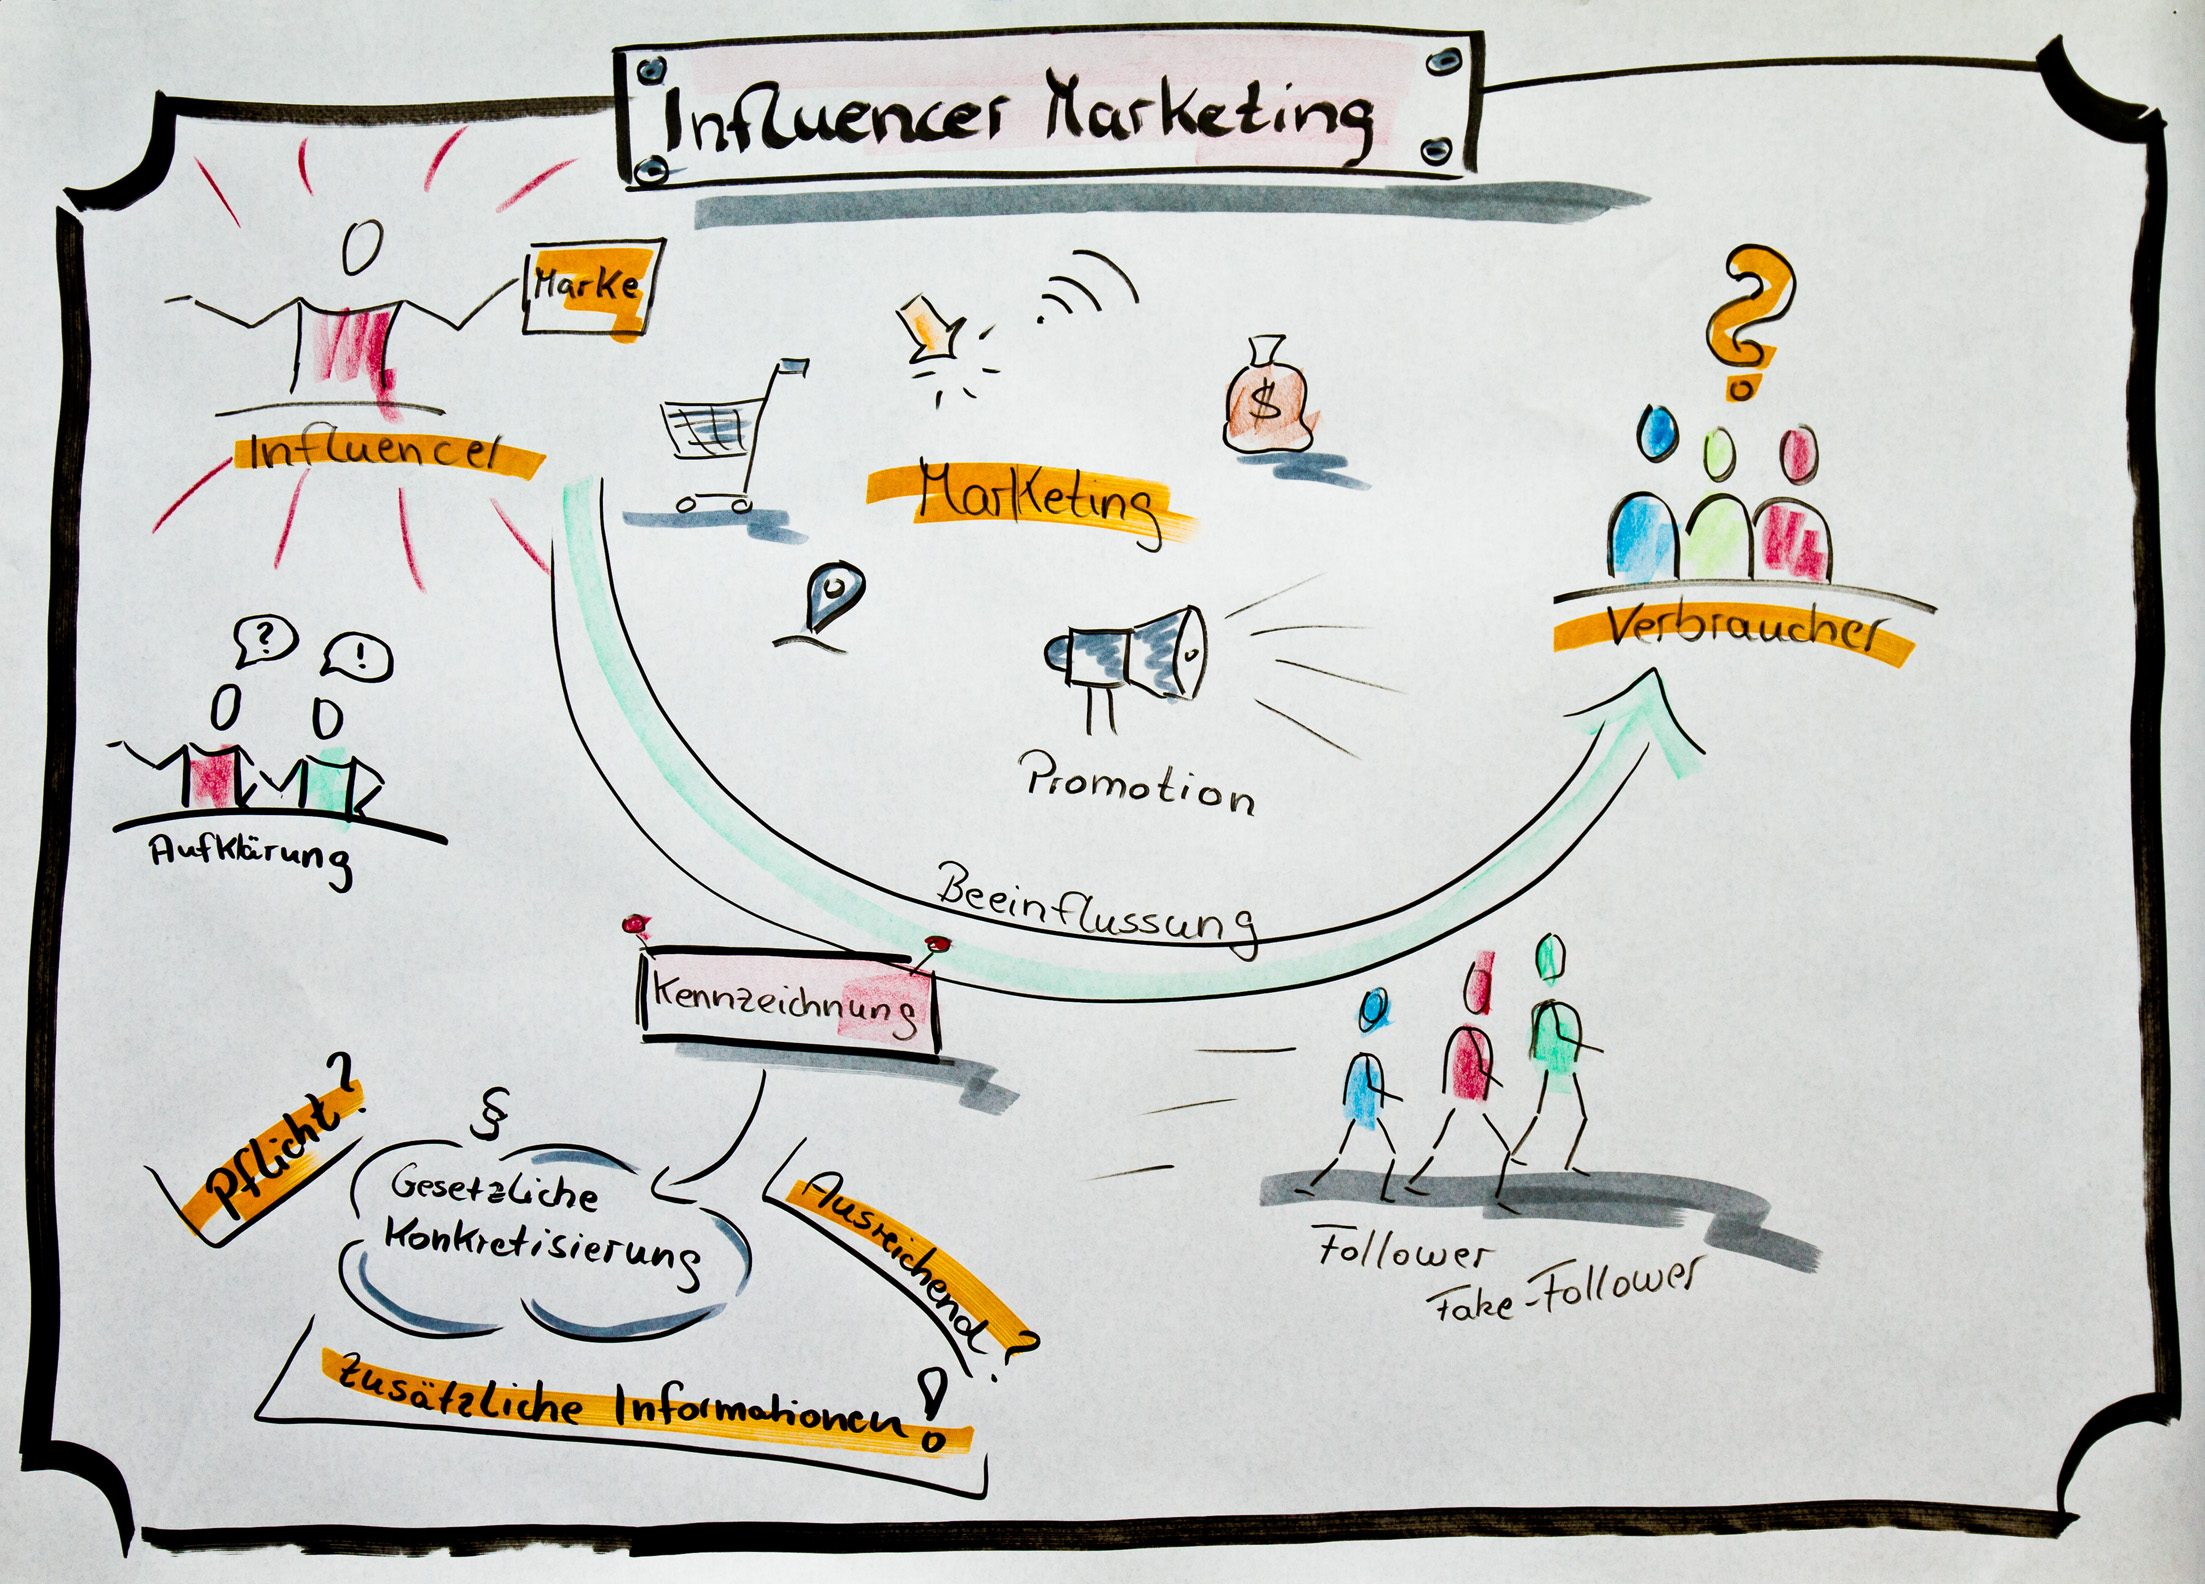 Influencer Marketing
Marke
Influencer
$
Marketing
?
Verbraucher
? !
Aufklärung
Promotion
Beeinflussung
Kennzeichnung
Pflicht?
§
Gesetzliche
Konkretisierung
Ausreichend?
Zusätzliche Informationen!
Follower
Fake-Follower